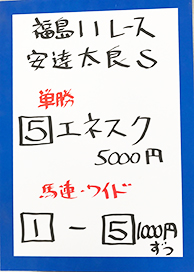 福島11レース
安達太良S
単勝
5エネスク
5000円
馬連・ワイド
1-5 1000円
ずつ